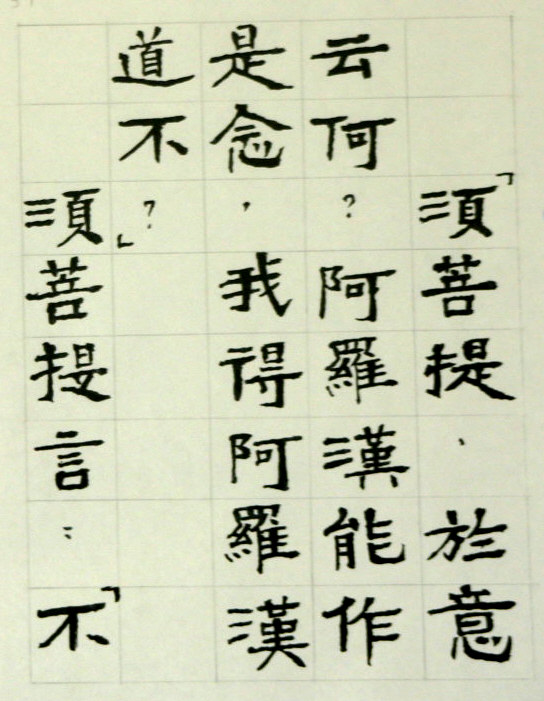 「須菩提、於意
云何？阿羅漢能作
是念，我得阿羅漢
道不？」
須菩提言：「不